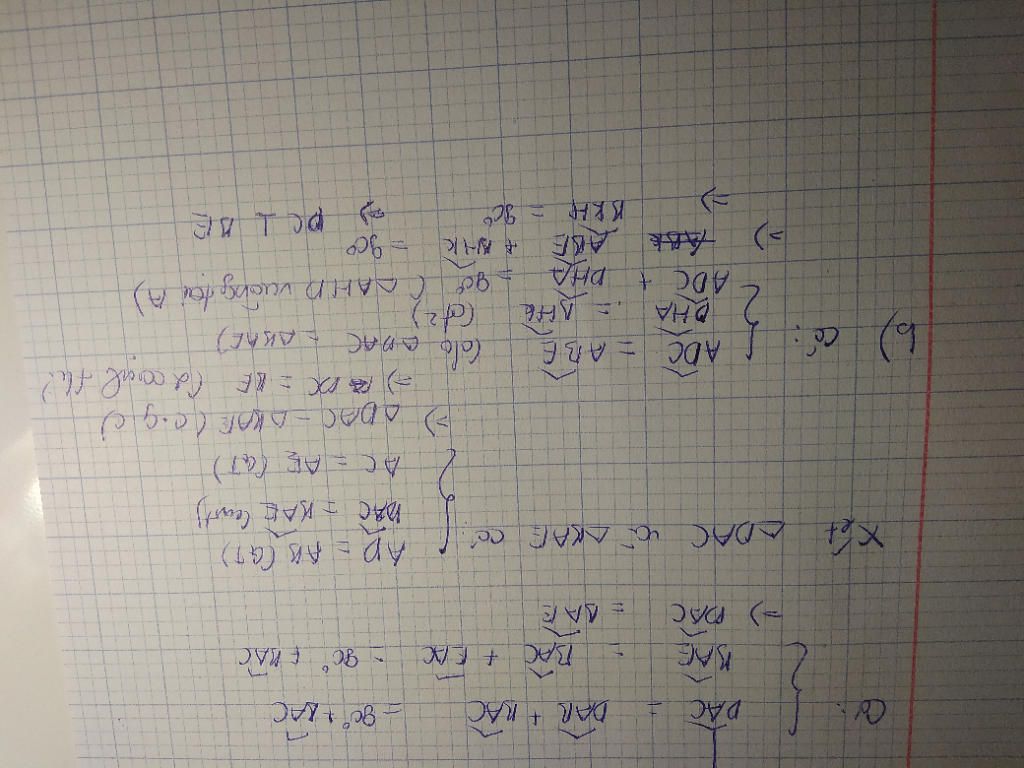 Có: { DAC = DAB + BAC = 90° + BAC
BAE = BAC + EAC = 90° + BAC
=> DAC = BAE
Xét △DAC và △BAE có: { AD = AB (GT)
DAC = BAE (cmt)
AC = AE (GT)
=> △DAC = △BAE (c.g.c)
=> DC = BE (2 cạnh t/ứ)
b) có: { ADC = ABE (do △DAC = △BAE)
DHA = BHK (đ²)
ADC + DHA = 90° (△AHD vuông tại A)
=> ABE + BHK = 90°
=> BKH = 90° => DC ⊥ BE